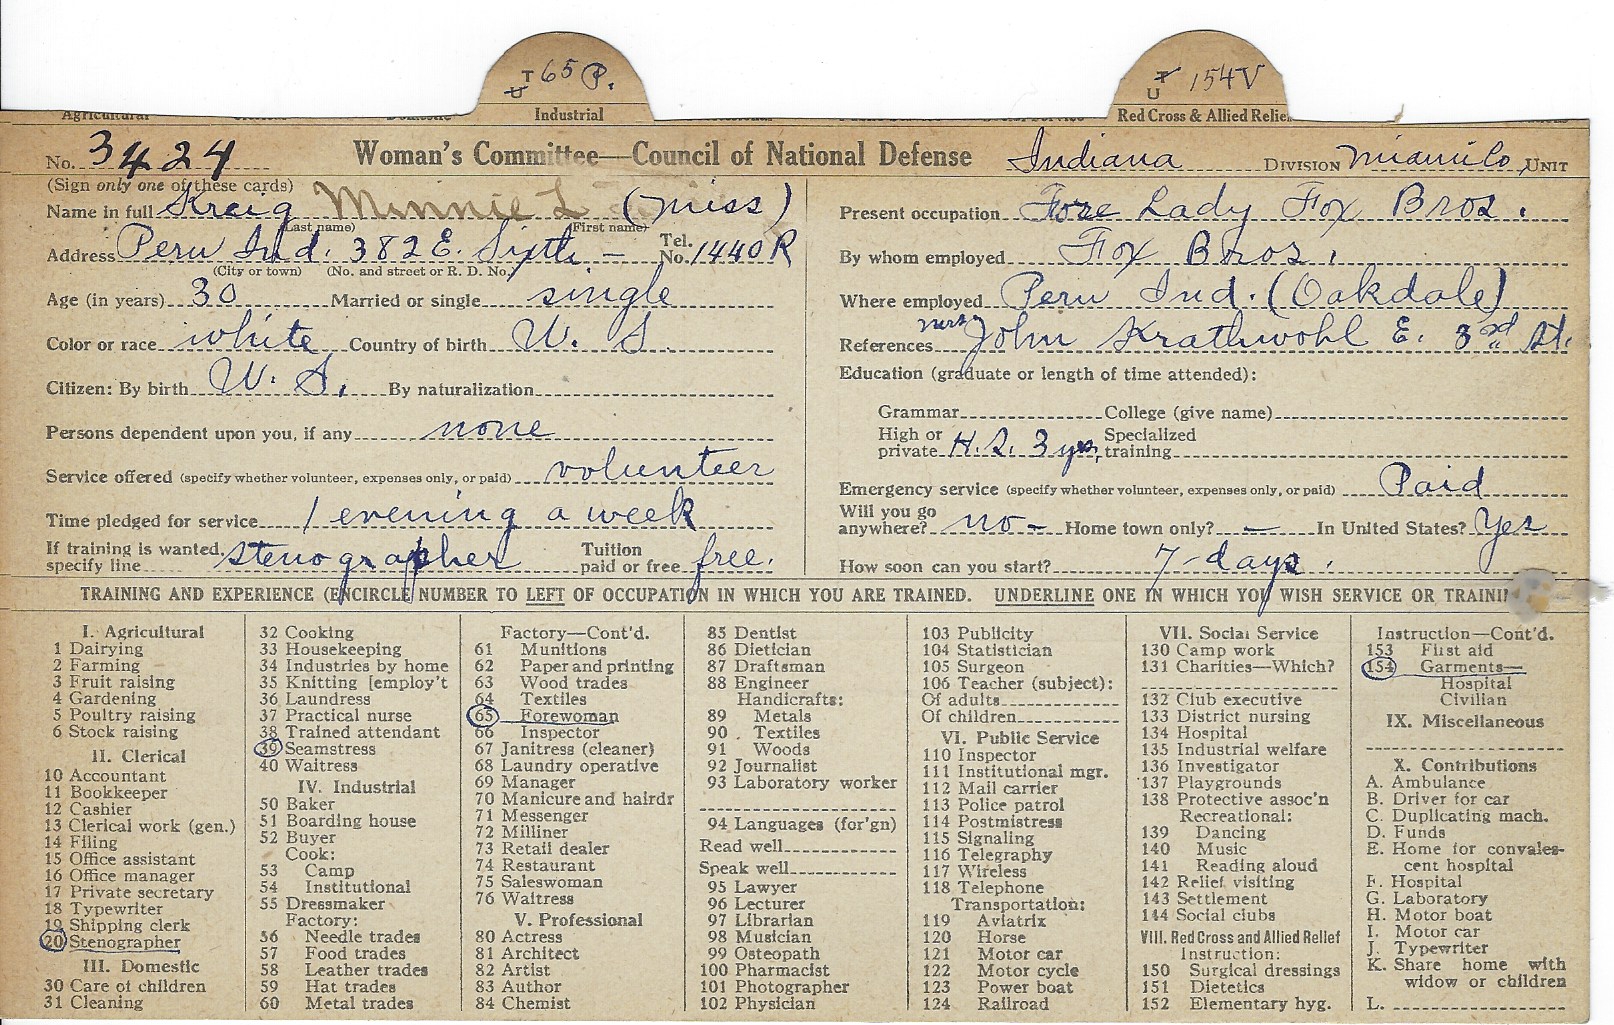 T U 65 P.
T U 154 V
Agricultural Industrial Red Cross & Allied Relief
No. 3424 Woman's Committee—Council of National Defense Indiana DIVISION Miami Co, UNIT
(Sign only one of these cards)
Name in full Kreig Minnie L (Miss)
(Last name) (First name)
Address Peru Ind. 382 E. Sixth - Tel. No. 1440 R
(City or town) (No. and street or R. D. No.)
Age (in years) 30 Married or single single
Color or race white Country of birth U. S.
Citizen: By birth U. S. By naturalization
Persons dependent upon you, if any none
Service offered (specify whether volunteer, expenses only, or paid) volunteer
Time pledged for service 1 evening a week
If training is wanted, specify line stenographer Tuition paid or free free.
Present occupation Fore Lady Fox Bros.
By whom employed Fox Bros.
Where employed Peru Ind. (Oakdale)
References Mrs. John Krathwohl E. 3rd St.
Education (graduate or length of time attended):
Grammar College (give name)
High or private H. S. 3 yrs. Specialized training
Emergency service (specify whether volunteer, expenses only, or paid) Paid
Will you go anywhere? no - Home town only? — In United States? Yes
How soon can you start? 7-days.
TRAINING AND EXPERIENCE (ENCIRCLE NUMBER TO LEFT OF OCCUPATION IN WHICH YOU ARE TRAINED. UNDERLINE ONE IN WHICH YOU WISH SERVICE OR TRAINI
I. Agricultural
1 Dairying
2 Farming
3 Fruit raising
4 Gardening
5 Poultry raising
6 Stock raising
II. Clerical
10 Accountant
11 Bookkeeper
12 Cashier
13 Clerical work (gen.)
14 Filing
15 Office assistant
16 Office manager
17 Private secretary
18 Typewriter
19 Shipping clerk
20 Stenographer
III. Domestic
30 Care of children
31 Cleaning
32 Cooking
33 Housekeeping
34 Industries by home
35 Knitting [employ't
36 Laundress
37 Practical nurse
38 Trained attendant
39 Seamstress
40 Waitress
IV. Industrial
50 Baker
51 Boarding house
52 Buyer
Cook:
53 Camp
54 Institutional
55 Dressmaker
Factory:
56 Needle trades
57 Food trades
58 Leather trades
59 Hat trades
60 Metal trades
Factory—Cont'd.
61 Munitions
62 Paper and printing
63 Wood trades
64 Textiles
65 Forewoman
66 Inspector
67 Janitress (cleaner)
68 Laundry operative
69 Manager
70 Manicure and hairdr
71 Messenger
72 Milliner
73 Retail dealer
74 Restaurant
75 Saleswoman
76 Waitress
V. Professional
80 Actress
81 Architect
82 Artist
83 Author
84 Chemist
85 Dentist
86 Dietician
87 Draftsman
88 Engineer
Handicrafts:
89 Metals
90 Textiles
91 Woods
92 Journalist
93 Laboratory worker
94 Languages (for'gn)
Read well
Speak well
95 Lawyer
96 Lecturer
97 Librarian
98 Musician
99 Osteopath
100 Pharmacist
101 Photographer
102 Physician
103 Publicity
104 Statistician
105 Surgeon
106 Teacher (subject):
Of adults
Of children
VI. Public Service
110 Inspector
111 Institutional mgr.
112 Mail carrier
113 Police patrol
114 Postmistress
115 Signaling
116 Telegraphy
117 Wireless
118 Telephone
Transportation:
119 Aviatrix
120 Horse
121 Motor car
122 Motor cycle
123 Power boat
124 Railroad
VII. Social Service
130 Camp work
131 Charities—Which?
132 Club executive
133 District nursing
134 Hospital
135 Industrial welfare
136 Investigator
137 Playgrounds
138 Protective assoc'n
Recreational:
139 Dancing
140 Music
141 Reading aloud
142 Relief visiting
143 Settlement
144 Social clubs
VIII. Red Cross and Allied Relief
Instruction:
150 Surgical dressings
151 Dietetics
152 Elementary hyg.
Instruction—Cont'd.
153 First aid
154 Garments—
Hospital
Civilian
IX. Miscellaneous
X. Contributions
A. Ambulance
B. Driver for car
C. Duplicating mach.
D. Funds
E. Home for convales-
cent hospital
F. Hospital
G. Laboratory
H. Motor boat
I. Motor car
J. Typewriter
K. Share home with
widow or children
L.